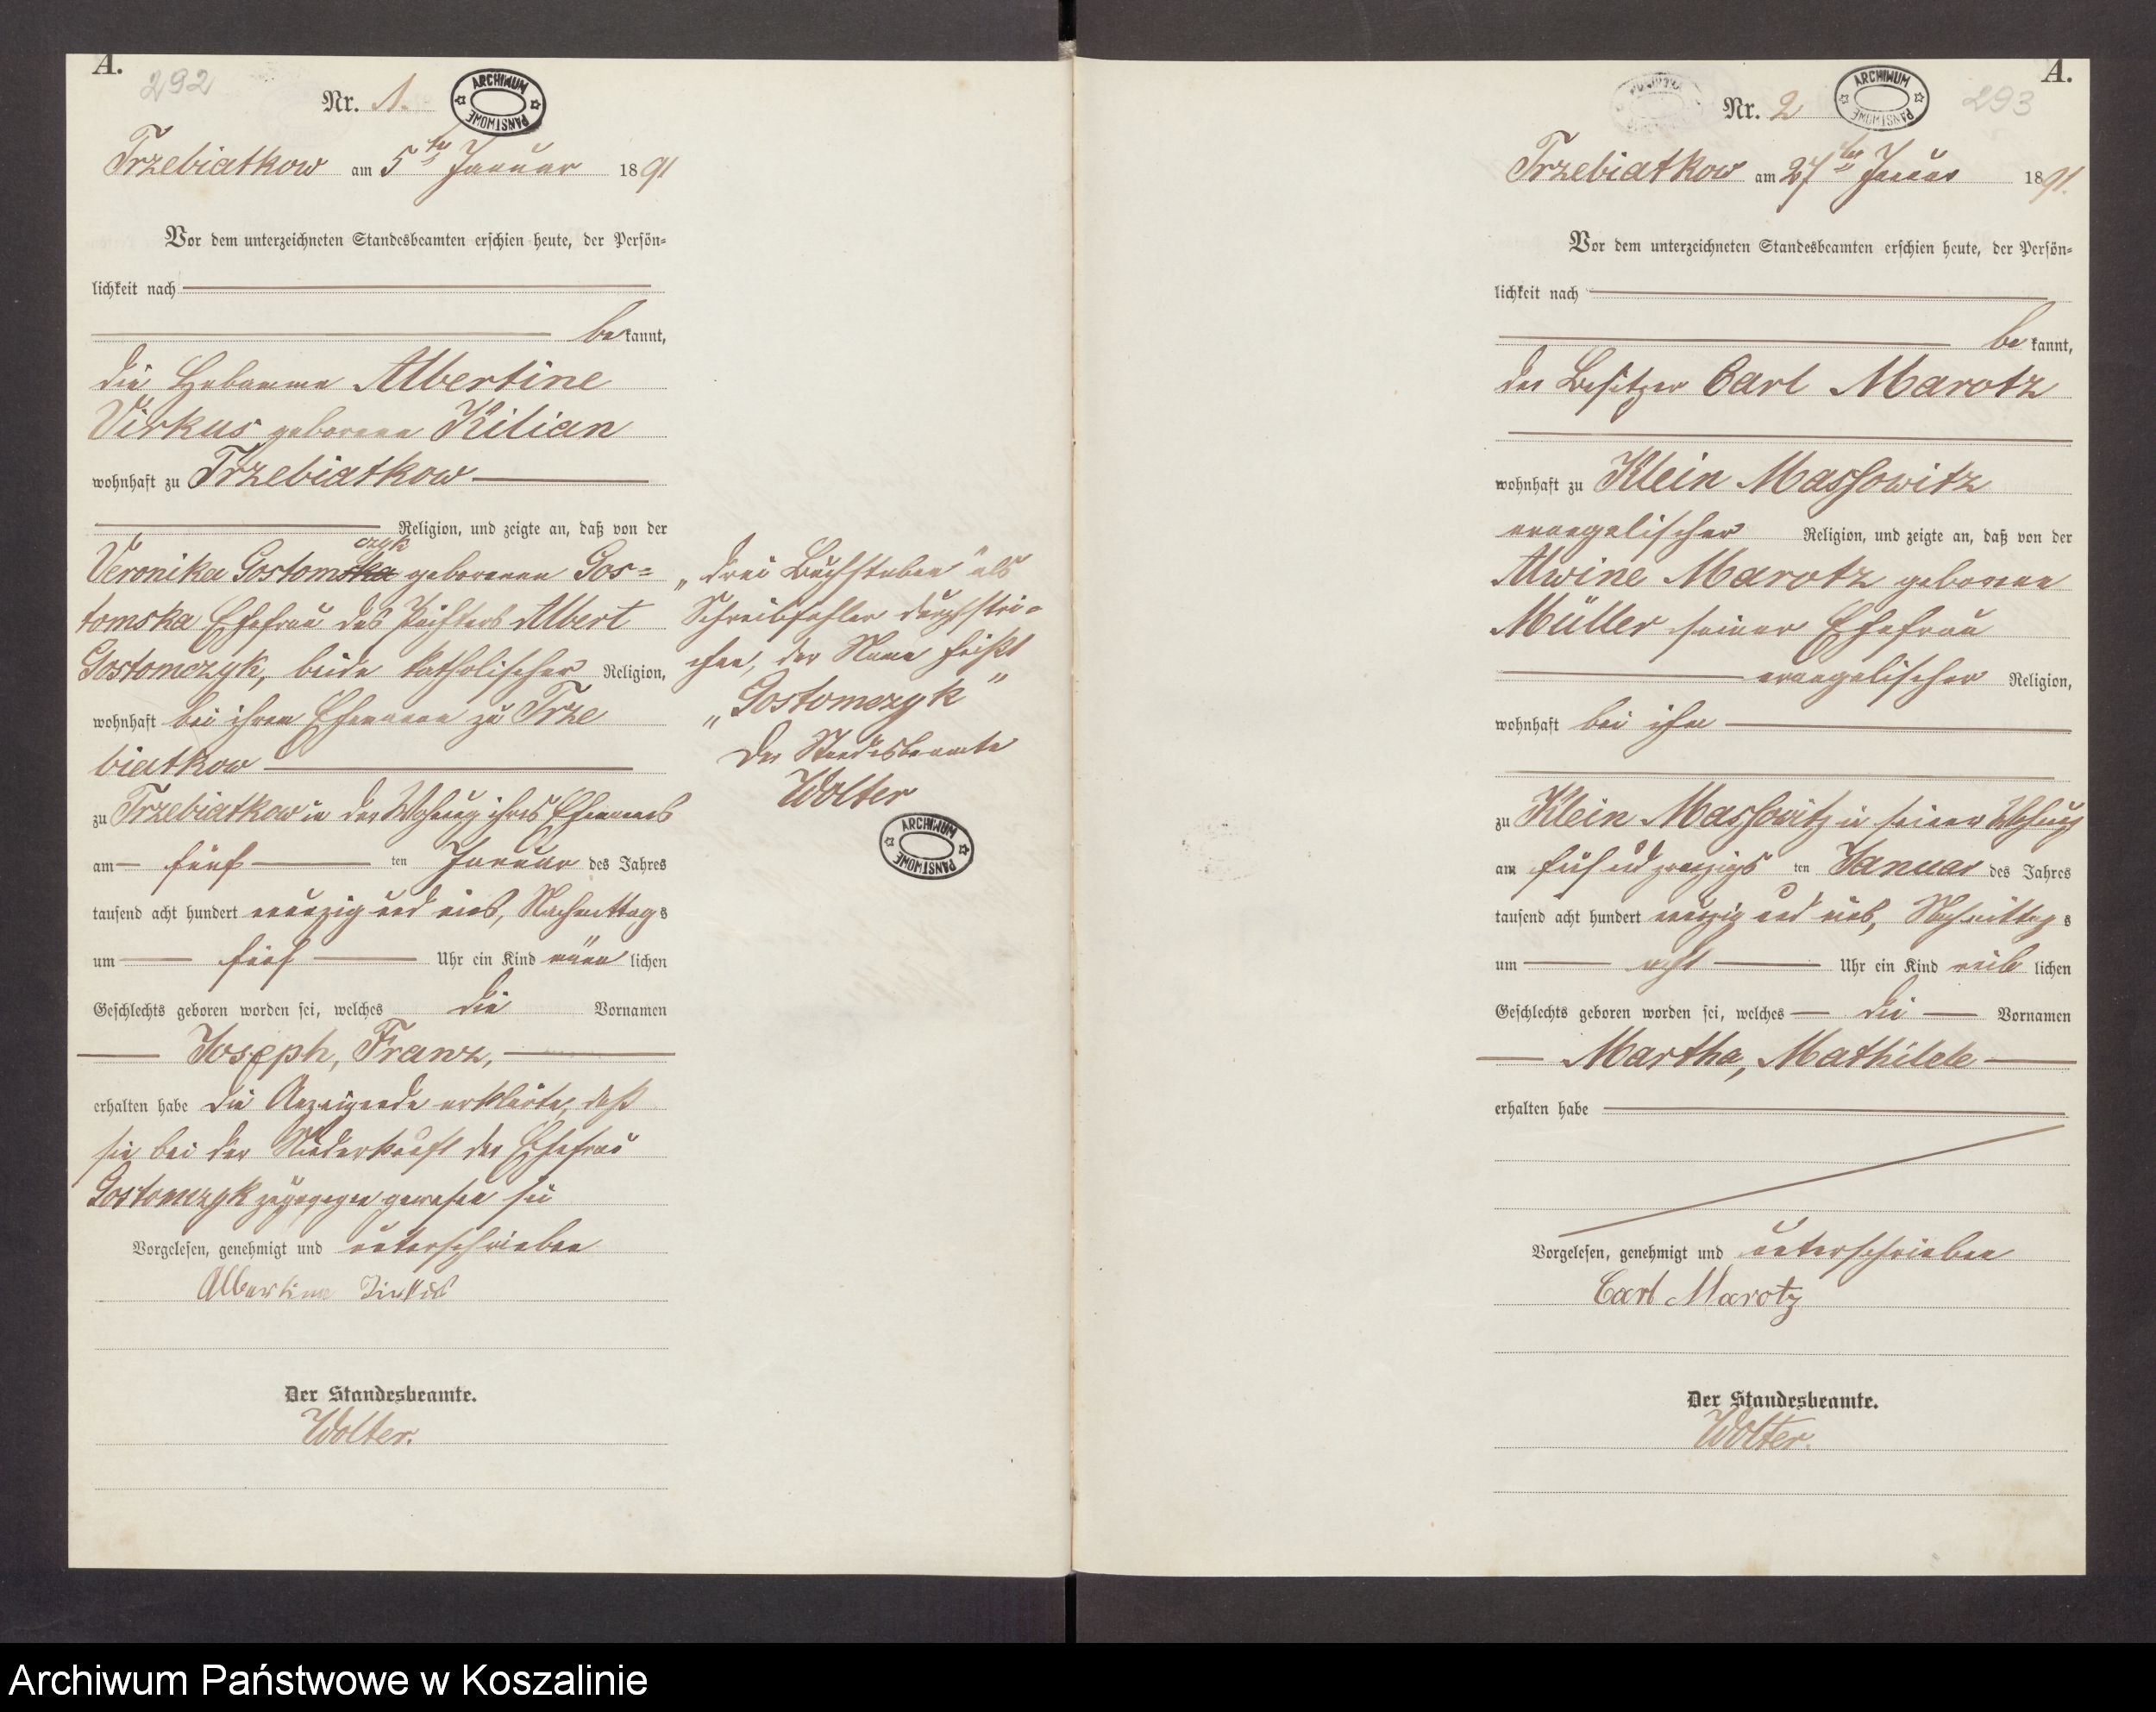 A.
292
Nr. 1.
ARCHIWUM PAŃSTWOWE
Trzebiatkow am 5ten Januar 1891
Vor dem unterzeichneten Standesbeamten erschien heute, der Persön-
lichkeit nach
bekannt,
die Hebamme Albertine
Virkus geborene Kilian
wohnhaft zu Trzebiatkow
Religion, und zeigte an, daß von der
czyk
Veronika Gostomska geborenen Gos=
tomska Ehefrau des Pächters Albert
Gostomczyk, beide katholischer Religion,
wohnhaft bei ihrem Ehemanne zu Trze
biatkow
zu Trzebiatkow in der Wohnung ihres Ehemannes
am fünften Januar des Jahres
tausend acht hundert neunzig und eins, Nachmittags
um fünf Uhr ein Kind männlichen
Geschlechts geboren worden sei, welches die Vornamen
Joseph, Franz,
erhalten habe die Anzeigende erklärte, daß
sie bei der Niederkunft der Ehefrau
Gostomczyk zugegen gewesen sei
Vorgelesen, genehmigt und unterschrieben
Albertine Virkus
Der Standesbeamte.
Wolter.
„drei Buchstaben" als
Schreibfehler durchstri=
chen, der Name heißt
„Gostomczyk"
Der Standesbeamte
Wolter
ARCHIWUM PAŃSTWOWE
A.
293
Nr. 2
ARCHIWUM PAŃSTWOWE
Trzebiatkow am 27ten Januar 1891.
Vor dem unterzeichneten Standesbeamten erschien heute, der Persön-
lichkeit nach
bekannt,
der Besitzer Carl Marotz
wohnhaft zu Klein Massowitz
evangelischer Religion, und zeigte an, daß von der
Alwine Marotz geborene
Müller seiner Ehefrau
evangelischer Religion,
wohnhaft bei ihm
zu Klein Massowitz in seiner Wohnung
am fünf und zwanzigsten Januar des Jahres
tausend acht hundert neunzig und eins, Nachmittags
um acht Uhr ein Kind weiblichen
Geschlechts geboren worden sei, welches die Vornamen
Martha, Mathilde
erhalten habe
Vorgelesen, genehmigt und unterschrieben
Carl Marotz
Der Standesbeamte.
Wolter.
Archiwum Państwowe w Koszalinie